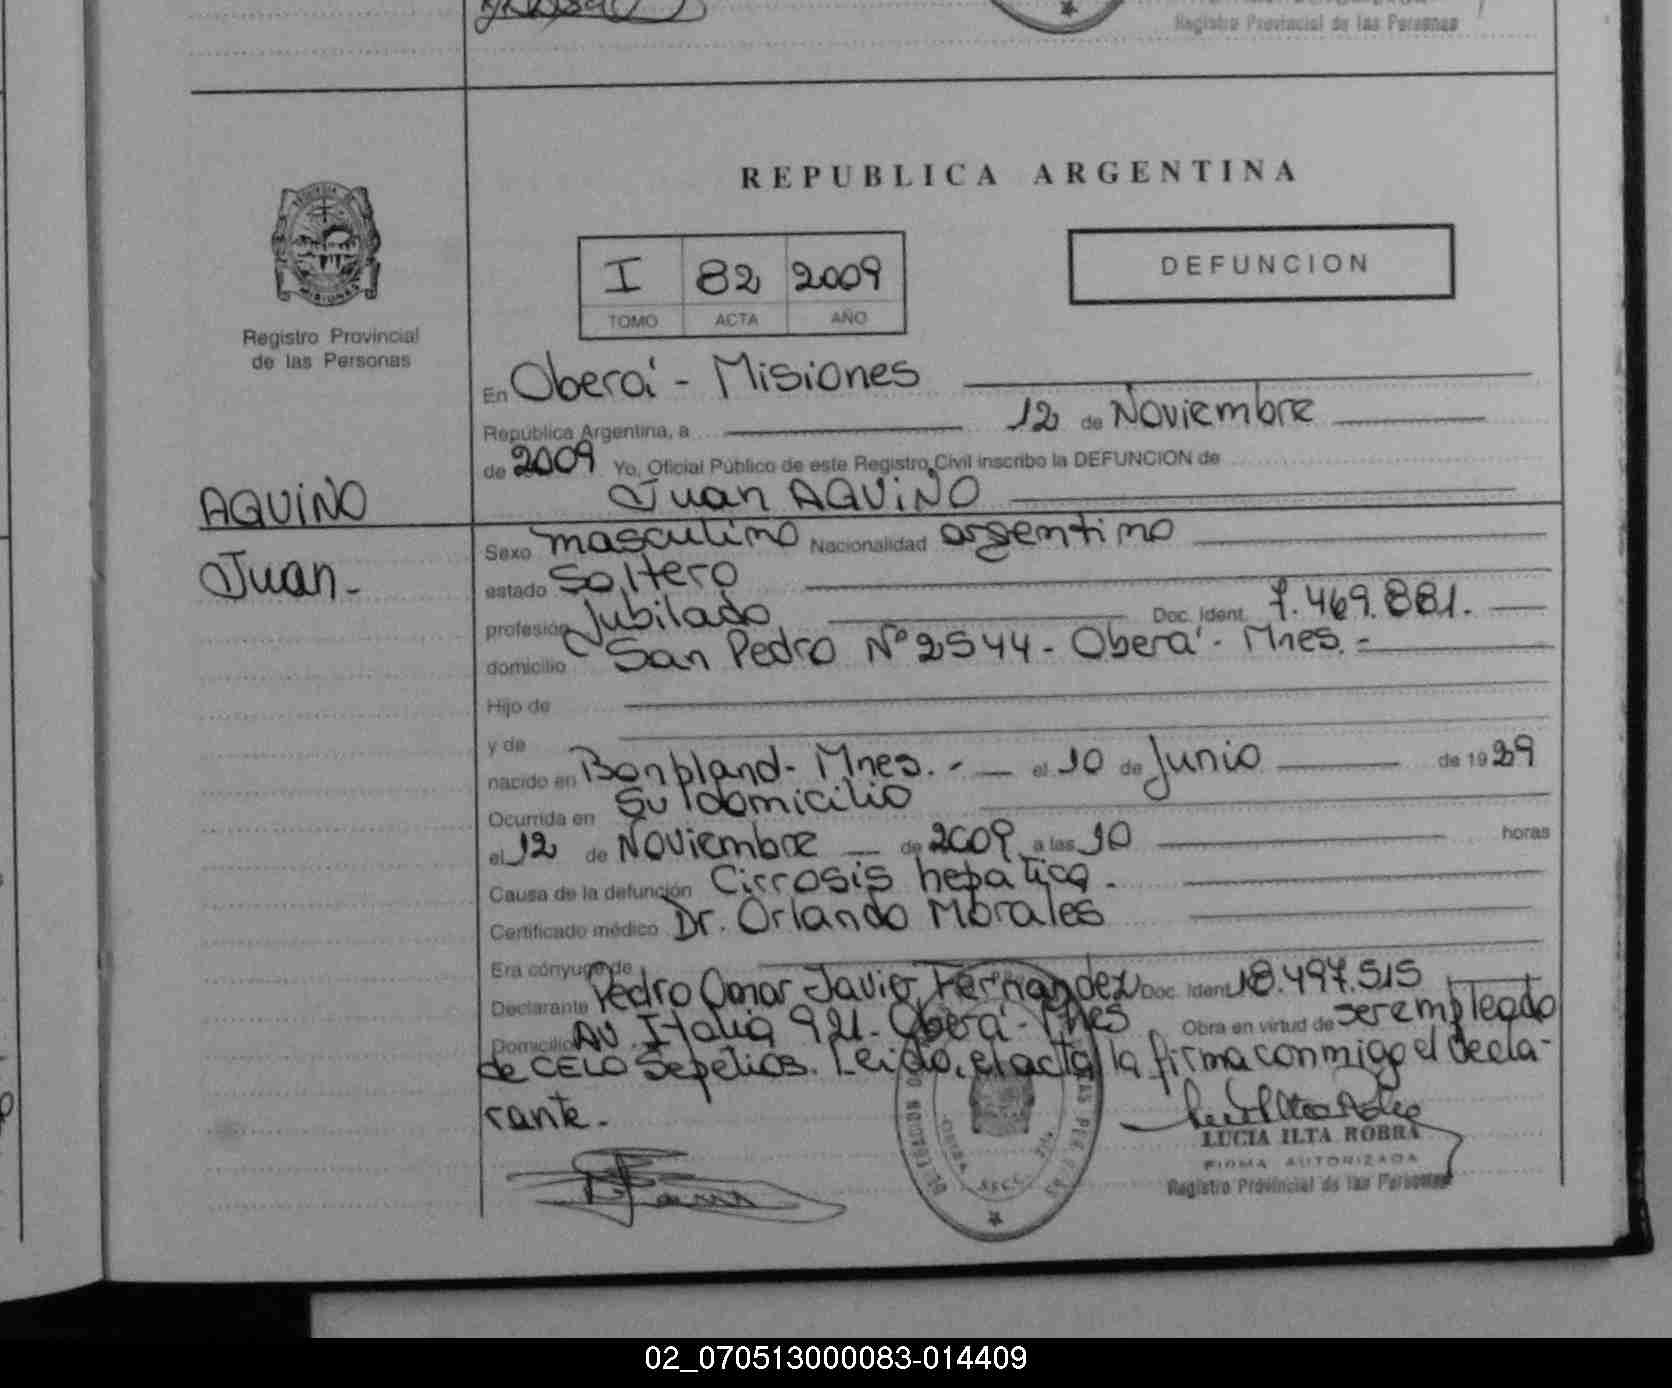 Registro Provincial de las Personas
REPUBLICA ARGENTINA
MISIONES
Registro Provincial
de las Personas
I 82 2009
TOMO ACTA AÑO
DEFUNCION
En Oberá - Misiones
República Argentina, a 12 de Noviembre
de 2009 Yo, Oficial Público de este Registro Civil inscribo la DEFUNCION de
Juan AQUINO
AQUINO
Juan-
Sexo masculino Nacionalidad argentino
estado Soltero
profesión Jubilado Doc. Ident. 7.469.881.
domicilio San Pedro Nº 2544 - Oberá - Mnes. -
Hijo de
y de
nacido en Bonpland - Mnes. - el 10 de Junio de 1929
Ocurrida en Su domicilio
el 12 de Noviembre de 2009 a las 10 horas
Causa de la defunción Cirrosis hepatica.
Certificado médico Dr. Orlando Morales
Era cónyuge de
Declarante Pedro Omar Javier Fernandez Doc. Ident. 18.497.515
Domicilio AV. Italia 921 - Oberá - Mnes Obra en virtud de ser empleado
de CELO Sepelios. Leido, el acta la firma conmigo el decla-
rante.-
LUCIA ILTA ROBRA
FIRMA AUTORIZADA
Registro Provincial de las Personas
02_070513000083-014409